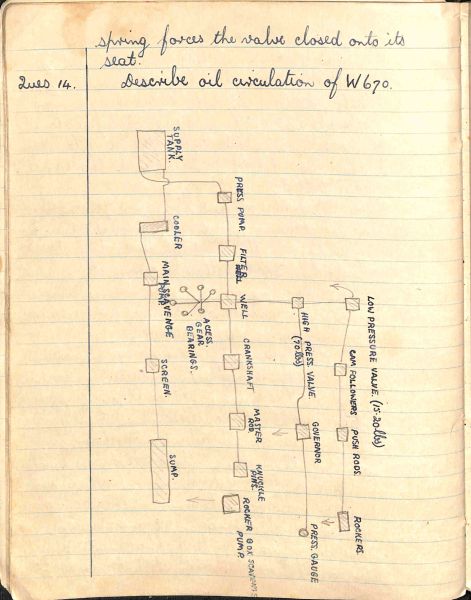 spring forces the valve closed onto its
seat.
Ques 14. Describe oil circulation of W670.
SUPPLY
TANK.
PRESS PUMP.
COOLER
FILTER
MAIN SCAVENGE
PUMP.
ACCESS.
GEAR
BEARINGS.
WELL
HIGH PRESS. VALVE.
(70 lbs)
LOW PRESSURE VALVE. (15-20 lbs)
SCREEN.
CRANKSHAFT
CAM FOLLOWERS
MASTER
ROD.
GOVERNOR
PUSH RODS.
SUMP.
KNUCKLE
PINS.
ROCKER BOX SCAVENGE
PUMP.
PRESS. GAUGE
ROCKERS.